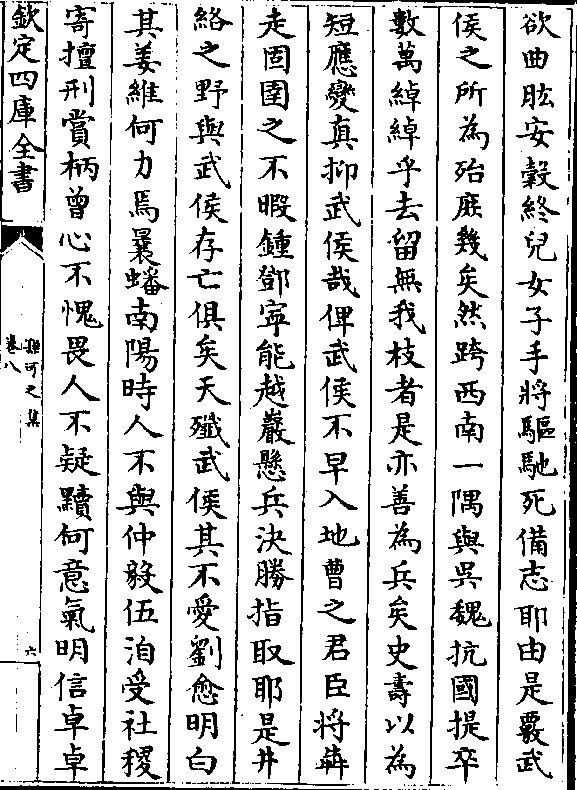 欲曲肱安穀終兒女子手將驅馳死備志耶由是覈武
侯之所為殆庶幾矣然跨西南一隅與吳魏抗國提卒
數萬綽綽乎去留無我枝者是亦善為兵矣史壽以為
短應變真抑武侯哉俾武侯不早入地曹之君臣將犇
走固圉之不暇鍾鄧寧能越巖懸兵決勝指取耶是井
絡之野與武侯存亡俱矣天殲武侯其不愛劉愈明白
其姜維何力焉曩蟠南陽時人不與仲毅伍洎受社稷
寄擅刑賞柄曾心不愧畏人不疑黷何意氣明信卓卓
欽定四庫全書
孫可之集
卷八
六